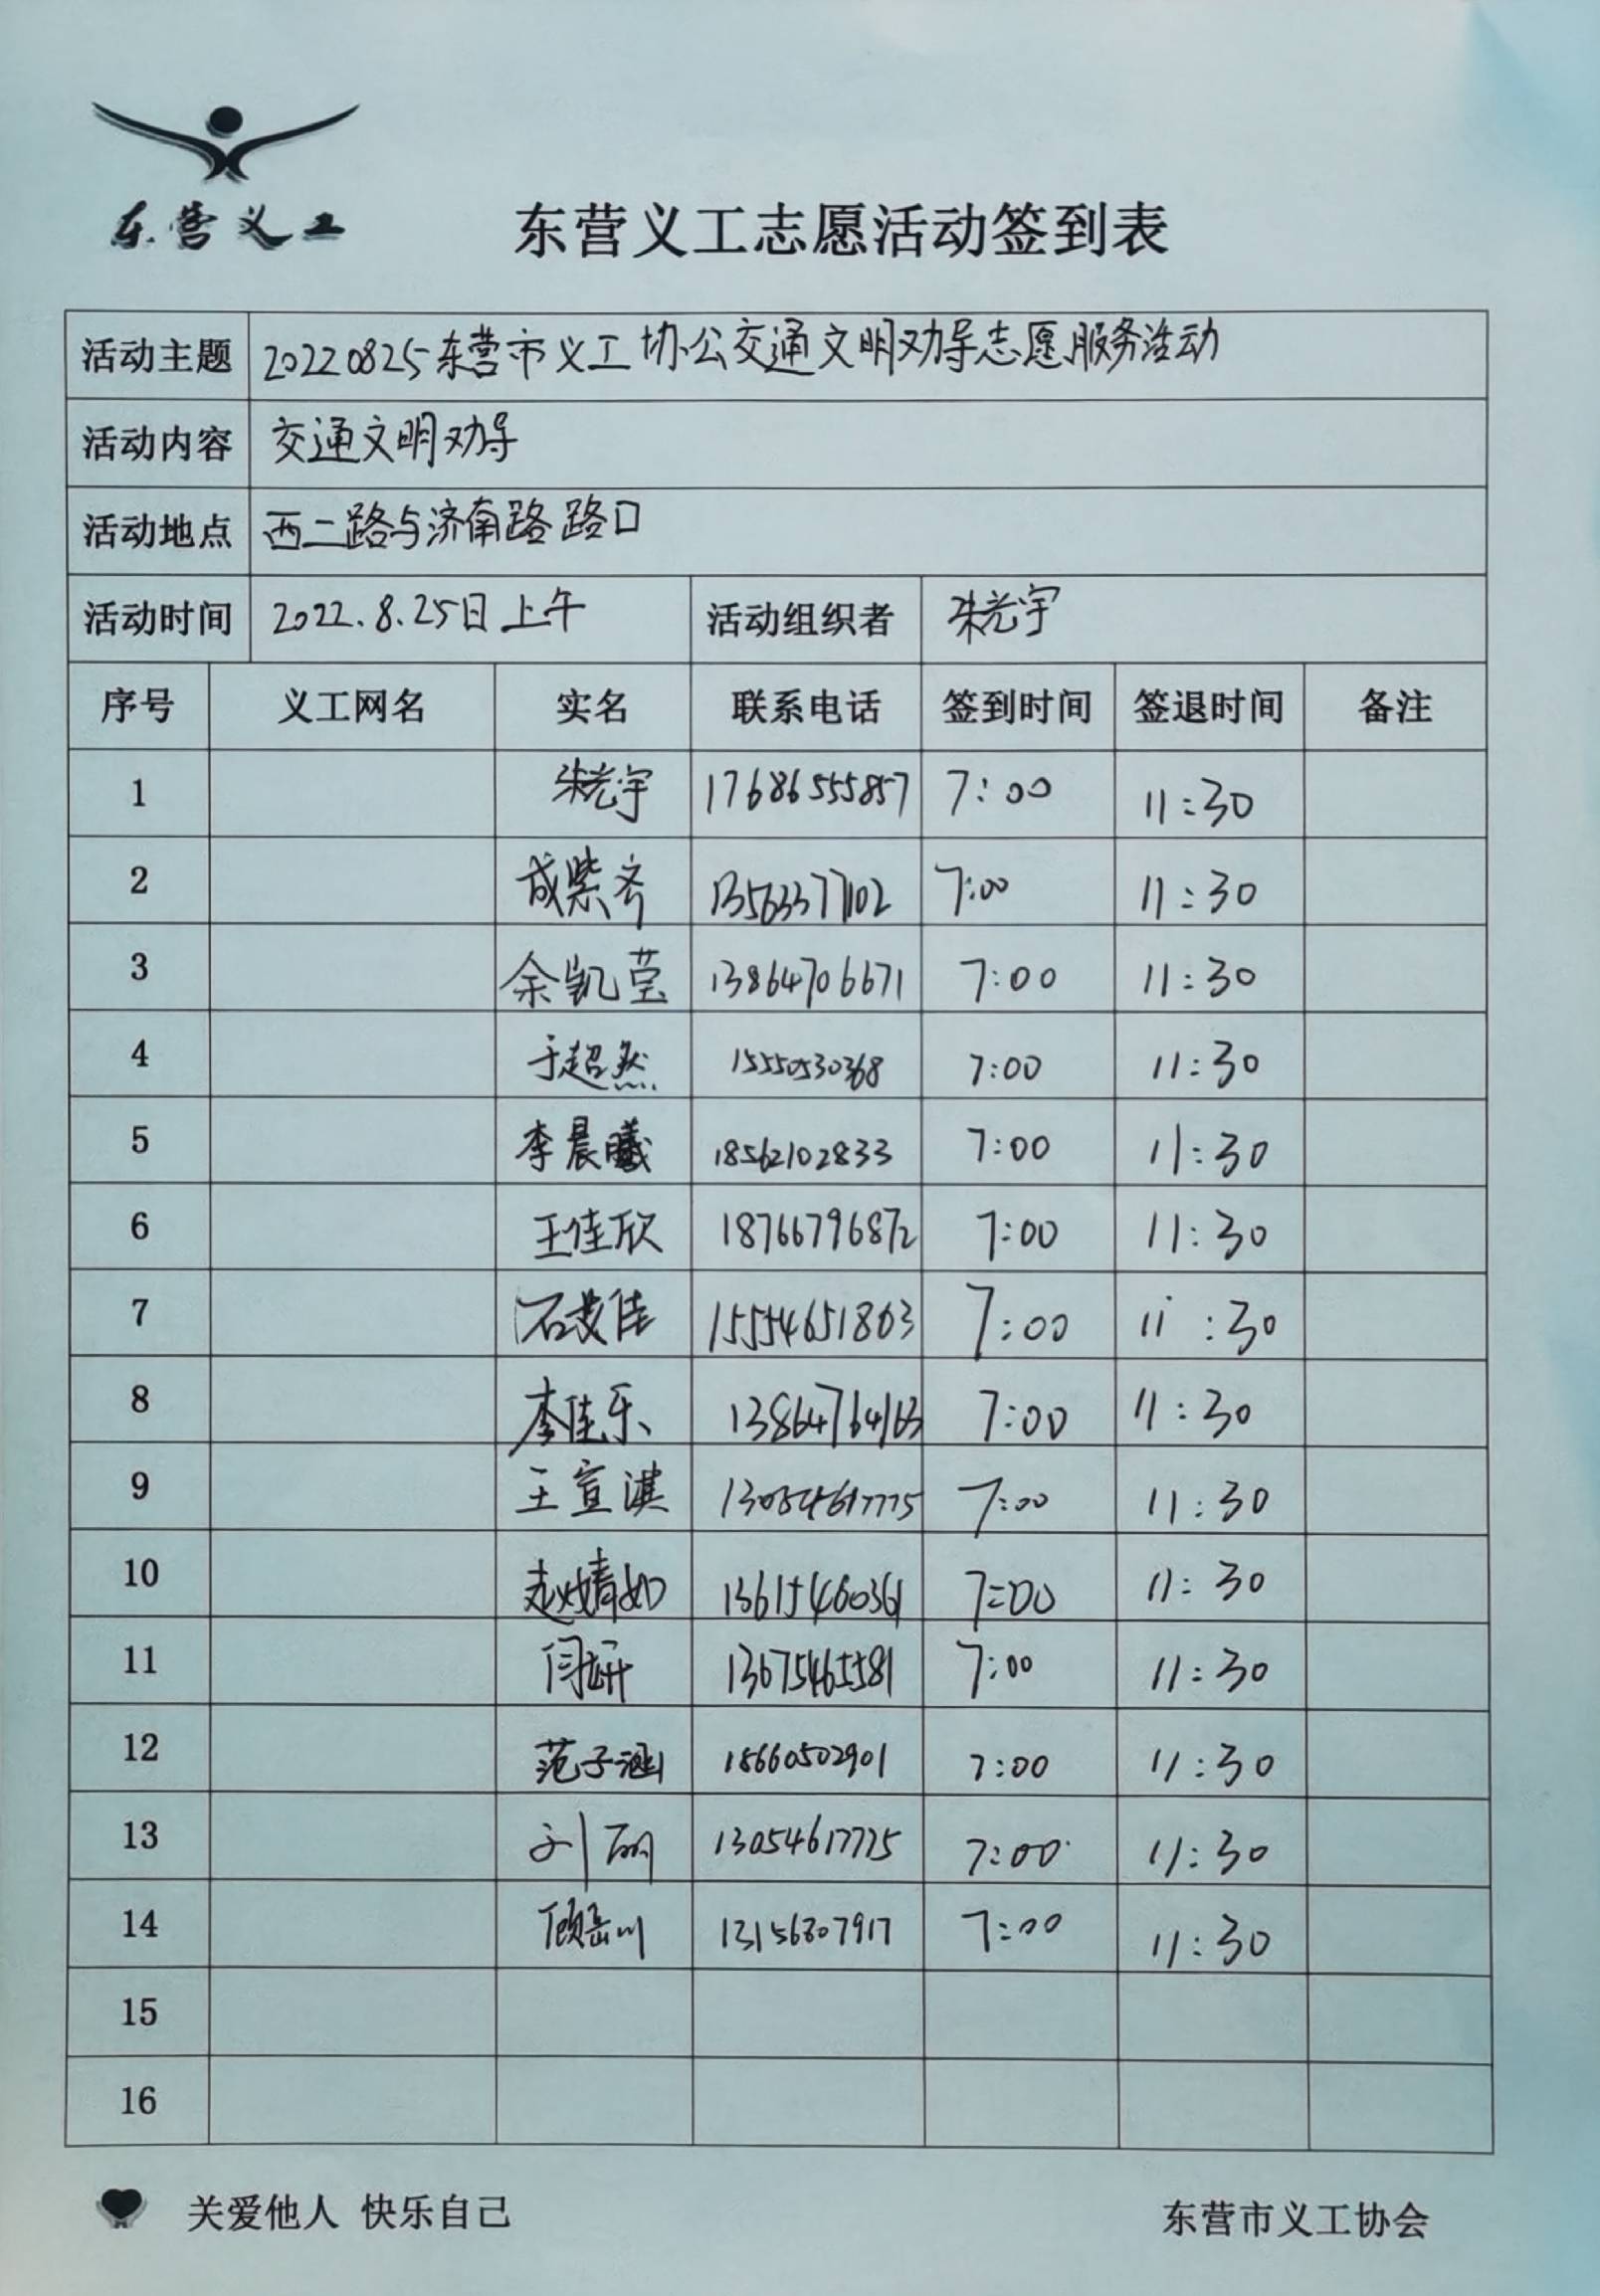 东营义工
东营义工志愿活动签到表
活动主题 20220825东营市义工协公交通文明劝导志愿服务活动
活动内容 交通文明劝导
活动地点 西二路与济南路路口
活动时间 2022.8.25日上午 活动组织者 朱光宇
序号 义工网名 实名 联系电话 签到时间 签退时间 备注
1 朱光宇 17686555857 7:00 11:30
2 成紫齐 13563377102 7:00 11:30
3 余凯莹 13864706671 7:00 11:30
4 于超然 15550530368 7:00 11:30
5 李晨曦 18562102833 7:00 11:30
6 王佳欣 18766796872 7:00 11:30
7 15554651863 7:00 11:30
8 李佳乐 13864764163 7:00 11:30
9 王宣淇 13054617775 7:00 11:30
10 赵婧如 13615460361 7:00 11:30
11 闫妍 13675465581 7:00 11:30
12 范子涵 18660502901 7:00 11:30
13 刘丽 13054617775 7:00 11:30
14 顾岳川 13156807917 7:00 11:30
15
16
关爱他人 快乐自己 东营市义工协会